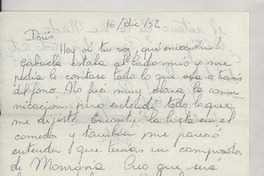 16/dic/52
Doris
Hoy oí tu voz, qué
Gabriela estaba al lado mío y me
pedía le contara todo lo que oía a través
del fono. No fué muy clara la comu-
nicación pero entendí todo lo que
me dijiste. Encontré la lista en el
comedor y también me pareció
entender que tenías un comprador
de Monrovia. Creo que será